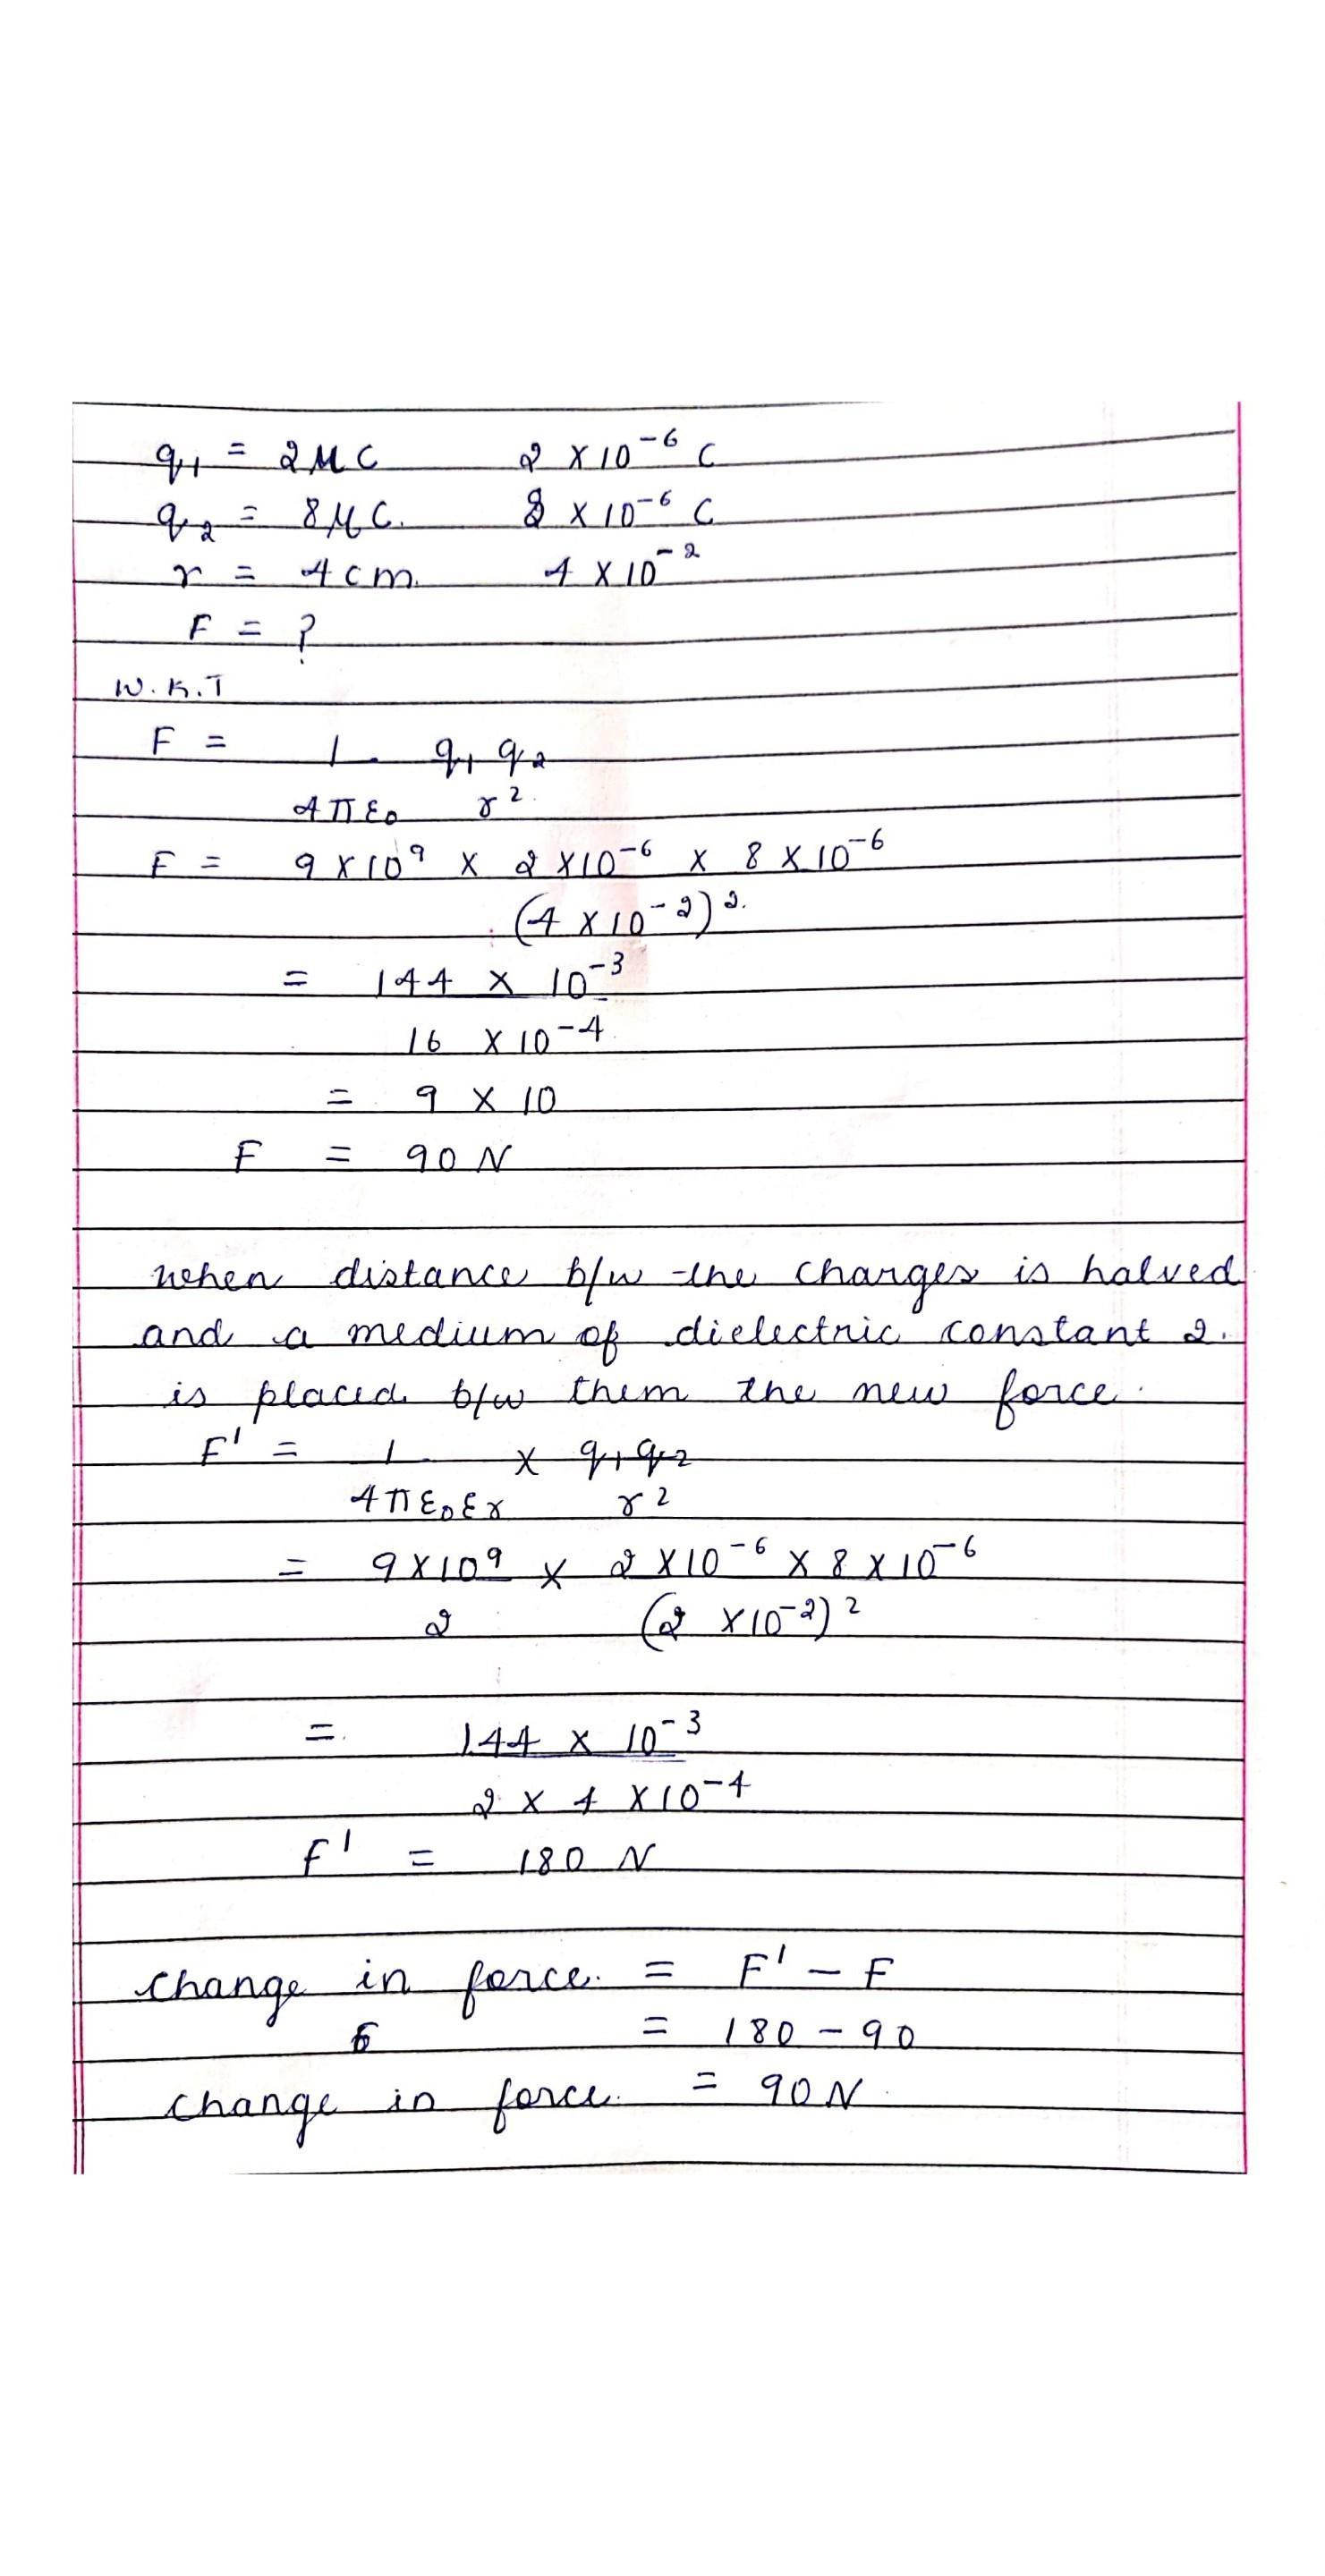 q1 = 2μC 2 × 10⁻⁶ C
q2 = 8μC. 8 × 10⁻⁶ C
r = 4cm. 4 × 10⁻²
F = ?
W.K.T
F = 1 q1 q2
4πε0 r².
F = 9 × 10⁹ × 2 × 10⁻⁶ × 8 × 10⁻⁶
(4 × 10⁻²)².
= 144 × 10⁻³
16 × 10⁻⁴
= 9 × 10
F = 90 N
when distance b/w the charges is halved
and a medium of dielectric constant 2.
is placed b/w them the new force.
F' = 1 × q1q2
4πε0εr r²
= 9 × 10⁹ × 2 × 10⁻⁶ × 8 × 10⁻⁶
2 (2 × 10⁻²)²
= 144 × 10⁻³
2 × 4 × 10⁻⁴
F' = 180 N
change in force. = F' − F
= 180 − 90
change in force. = 90 N